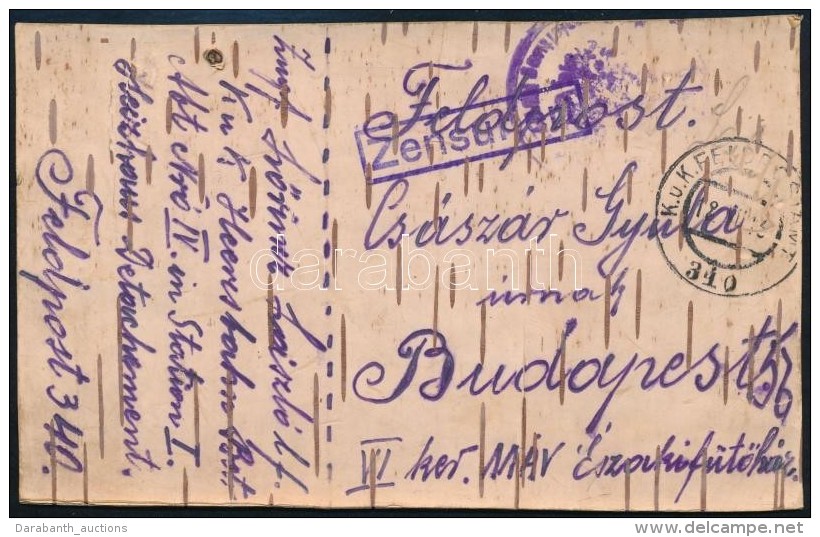 Feldpost.
Zensuriert
Császár Gyula
úrnak
Budapest. 56
VI ker. MÁV Északifűtőház.
K.u.K. FELDPOSTAMT
340
László
K u K Heeresbahn
Abt Nro IV. in Station I.
Heizhaus Detachement.
Feldpost 340.
darabanth
Darabanth_auctions
http://www.delcampe.net